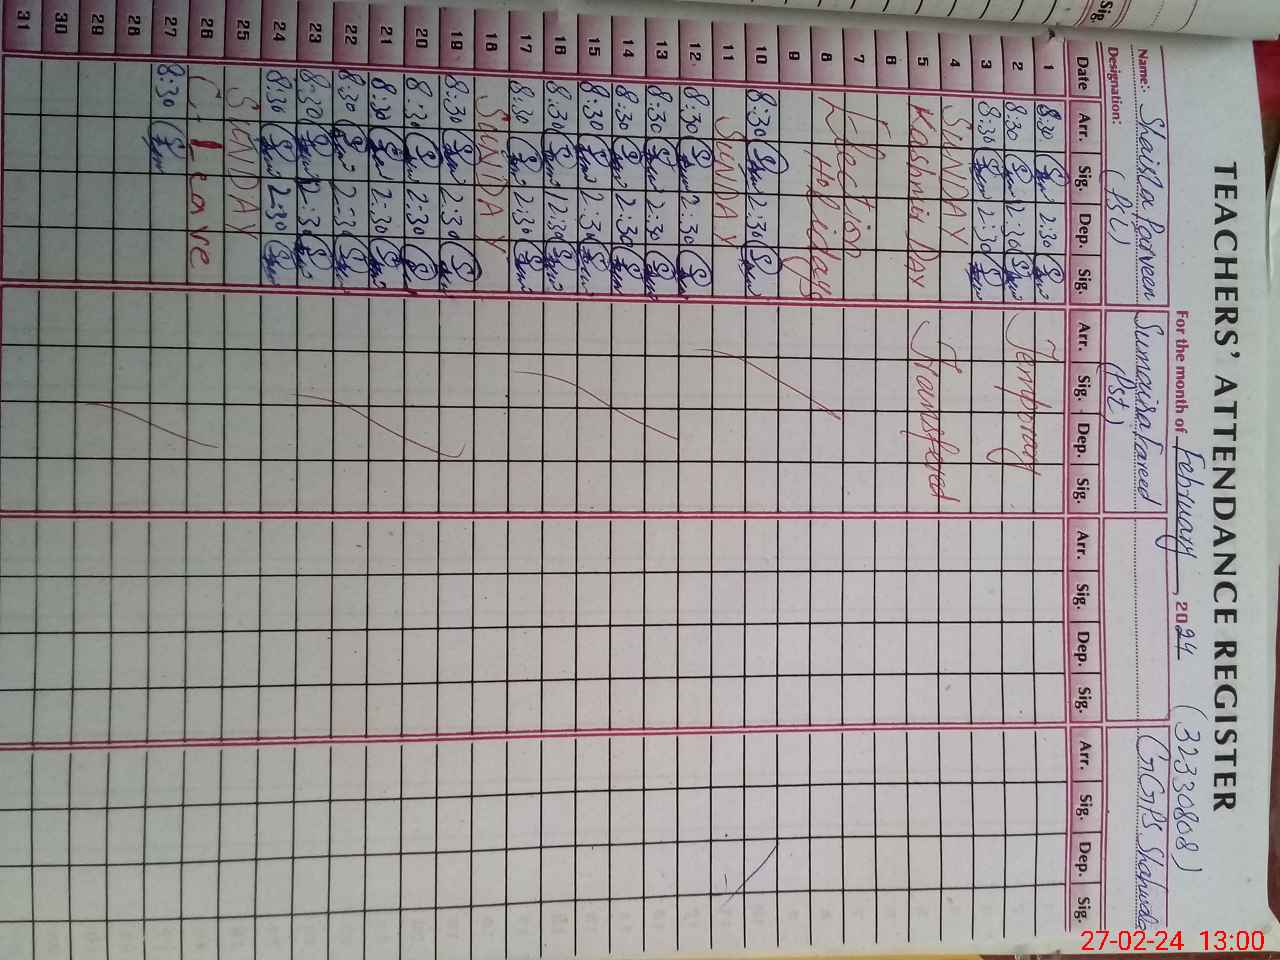 TEACHERS' ATTENDANCE REGISTER
For the month of February 2024 (32330808)
Name: Shaista Parveen Sumaira fareed GGPS Shahwala
Designation: (PST) (Pst)
Date Arr. Sig. Dep. Sig. Arr. Sig. Dep. Sig. Arr. Sig. Dep. Sig. Arr. Sig. Dep. Sig.
1 8:30 2:30 Temporary
2 8:30 2:30
3 8:30 2:30
4 SUNDAY
5 Kashmir DAY Transfered
6
7 Election
8 Holidays
9
10 8:30 2:30
11 SUNDAY
12 8:30 2:30
13 8:30 2:30
14 8:30 2:30
15 8:30 2:30
16 8:30 12:30
17 8:30 2:30
18 SUNDAY
19 8:30 2:30
20 8:30 2:30
21 8:30 2:30
22 8:30 2:30
23 8:30 12:30
24 8:30 2:30
25 SUNDAY
26 C. Leave
27 8:30
28
29
30
31
Sig.
27-02-24 13:00